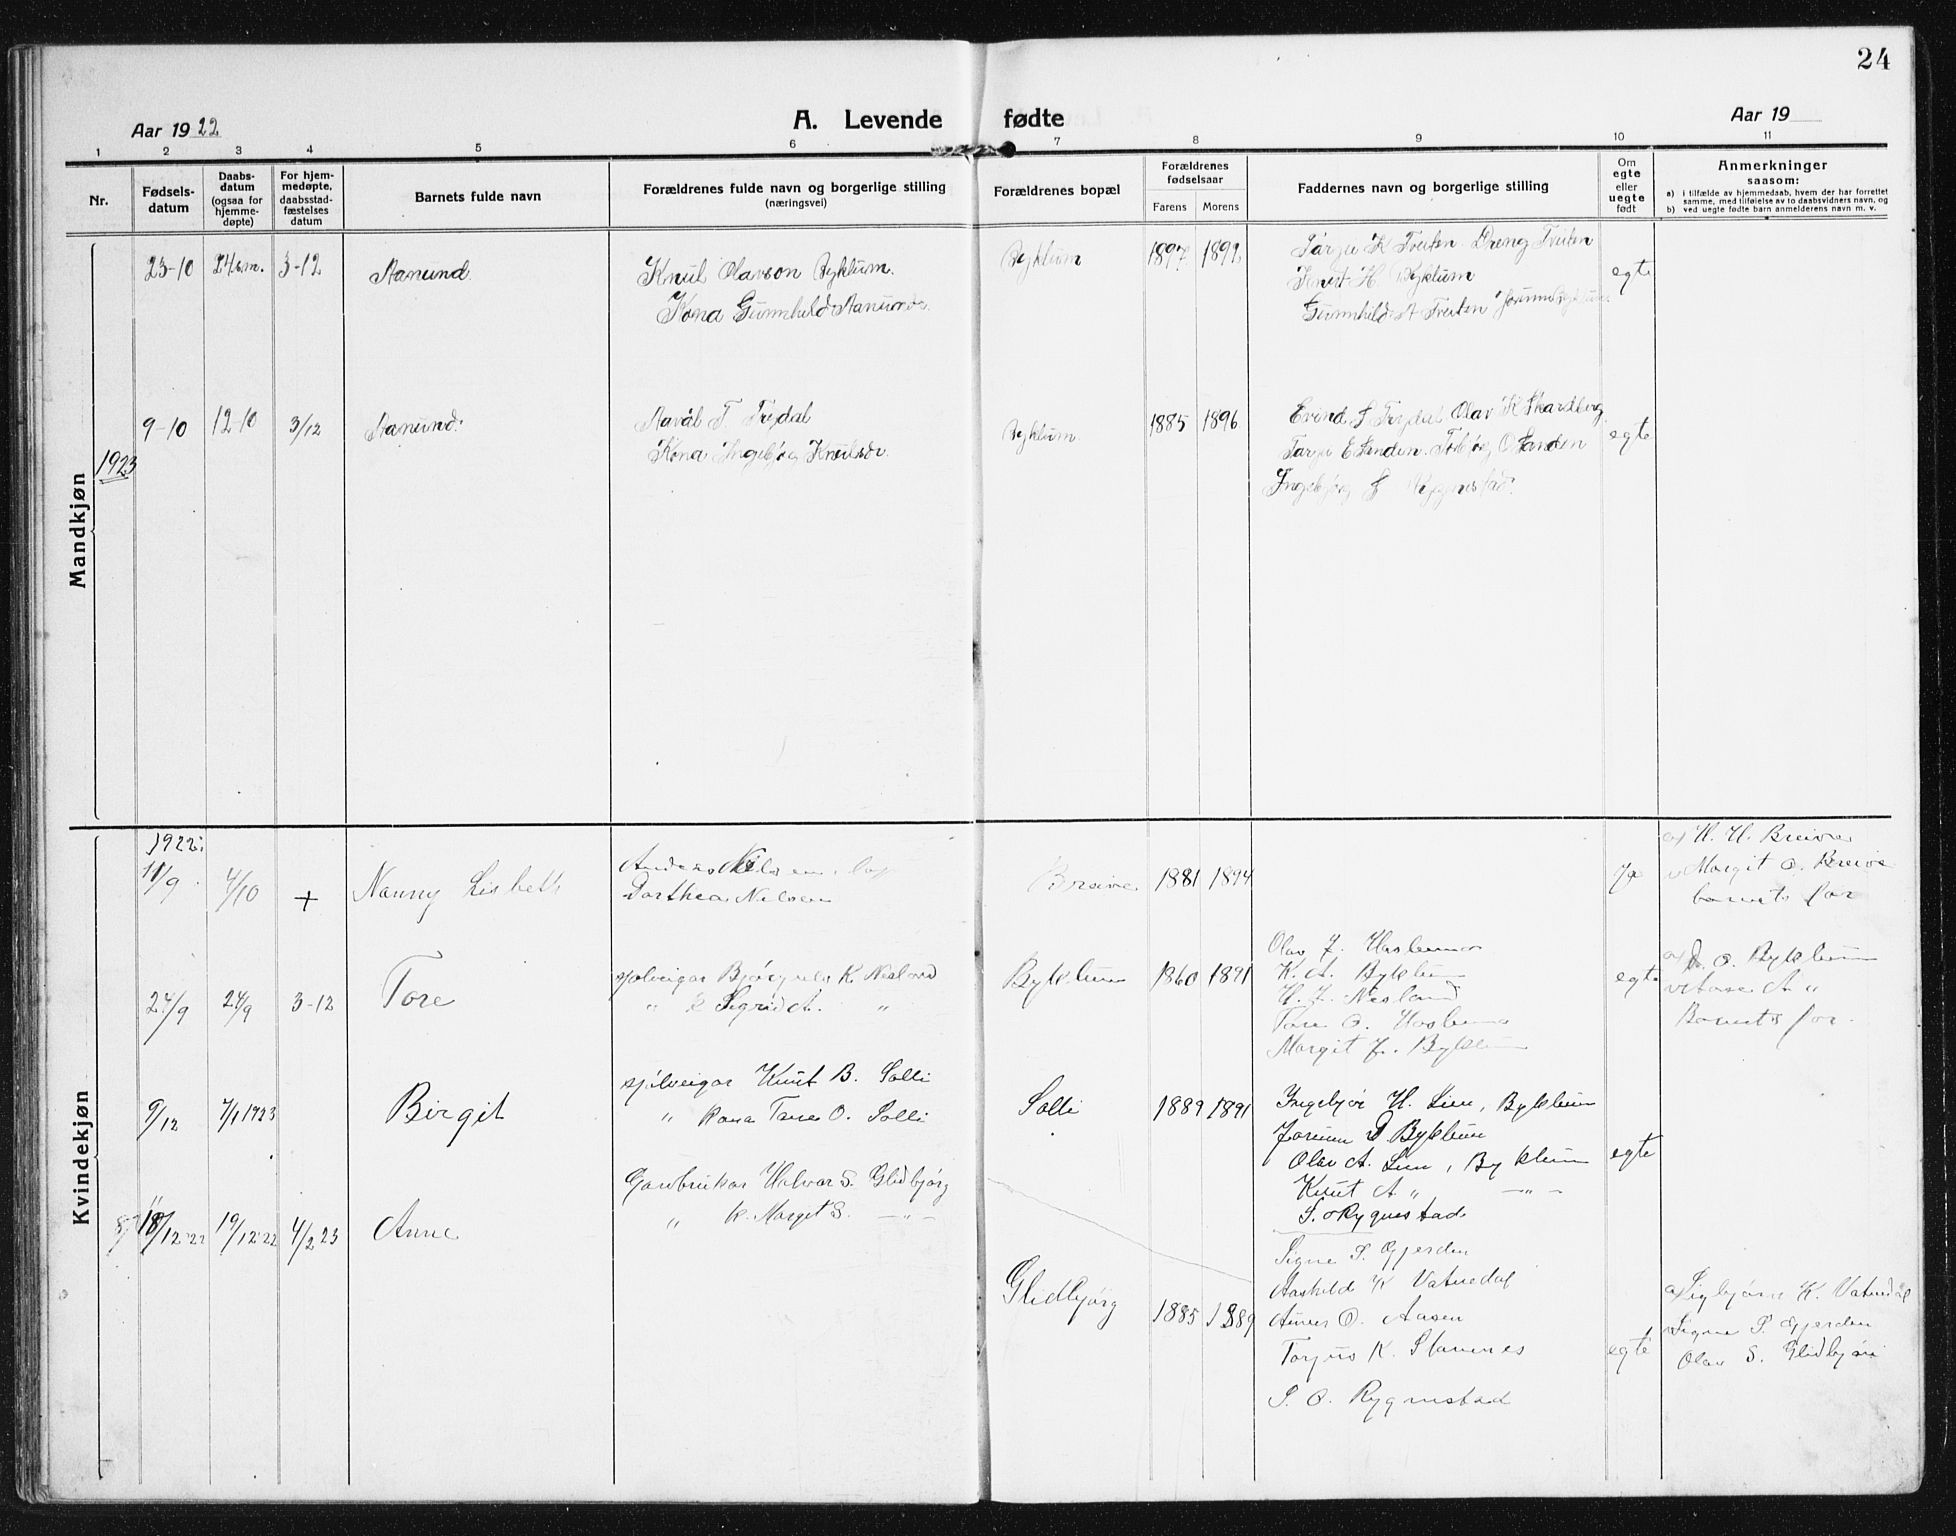 24
Aar 1922
A. Levende fødte
Aar 19
1 2 3 4 5 6 7 8 9 10 11
Nr.
Fødsels-
datum
Daabs-
datum
(ogsaa for
hjemme-
døpte)
For hjem-
medøpte,
daabsstad-
fæstelses
datum
Barnets fulde navn
Forældrenes fulde navn og borgerlige stilling
(næringsvei)
Forældrenes bopæl
Forældrenes
fødselsaar
Farens Morens
Faddernes navn og borgerlige stilling
Om
egte
eller
uegte
født
Anmerkninger
saasom:
a) i tilfælde av hjemmedaab, hvem der har forrettet
samme, med tilføielse av to daabsvidners navn, og
b) ved uegte fødte barn anmelderens navn m. v.
Mandkjøn
23-10 3-12 Aanund
Knut Olavson Byklum.
Kona Gunnhild Aanundsd.
Byklum 1897 1892
Tarjei K Tveiten Dreng Tveiten
Knut H. Byklum
Gunnhild A Tveiten Jorunn Byklum
egte
1923
9-10 12-10 3/12 Aanund.
T. Trydal
Kona Ingebjørg Knutsdr.
Byklum. 1885 1896
Evind S Trydal Olav K Skardberg
Tarjei E Sanden. Torbjørg O Sanden
Ingebjørg S Rygnestad.
egte
Kvindekjøn
1922:
11/9 4/10 + Nanny Lisbeth
Anders Nielsen og
Dorthea Nielsen
Breive 1881 1894
Ja
a) H. H. Breive
Margit O. Breive
barnets far
24/9 24/9 3-12 Tore
sjølveigar Bjørgulv K Nesland
" k Sigrid A. "
Byklum 1860 1891
Olav J. Haslemo
K. A. Byklum
H. J. Nesland
Tore O. Haslemo
Margit J. Byklum
egte
a) D. O. Byklum
Aase A "
Barnets far.
9/12 7/1 1923 Birgit
sjølveigar Knut B. Solli
" kona Tone O. Solli
Solli 1889 1891
Ingebjør H. Lien, Byklum
Jorunn D Byklum
Olav A. Lien, Byklum
Knut A " - " -
S. O Rygnestad
egte
18/12 22 19/12 22 4/2 23 Anne
Gardbrukar Halvar S. Glidbjørg
" k. Margit S. - " -
Glidbjørg 1885 1889
Signe S. Gjerden
Aashild K Vatnedal
O. Aasen
Torjus K. Stavenes
S. O. Rygnestad
egte
a) Sigbjørn K. Vatnedal
Signe S. Gjerden
Olav S. Glidbjør